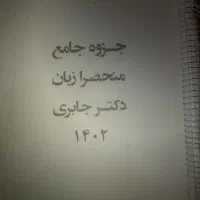 جزوه جامع
منحصرا زبان
دکتر جابری
۱۴۰۲